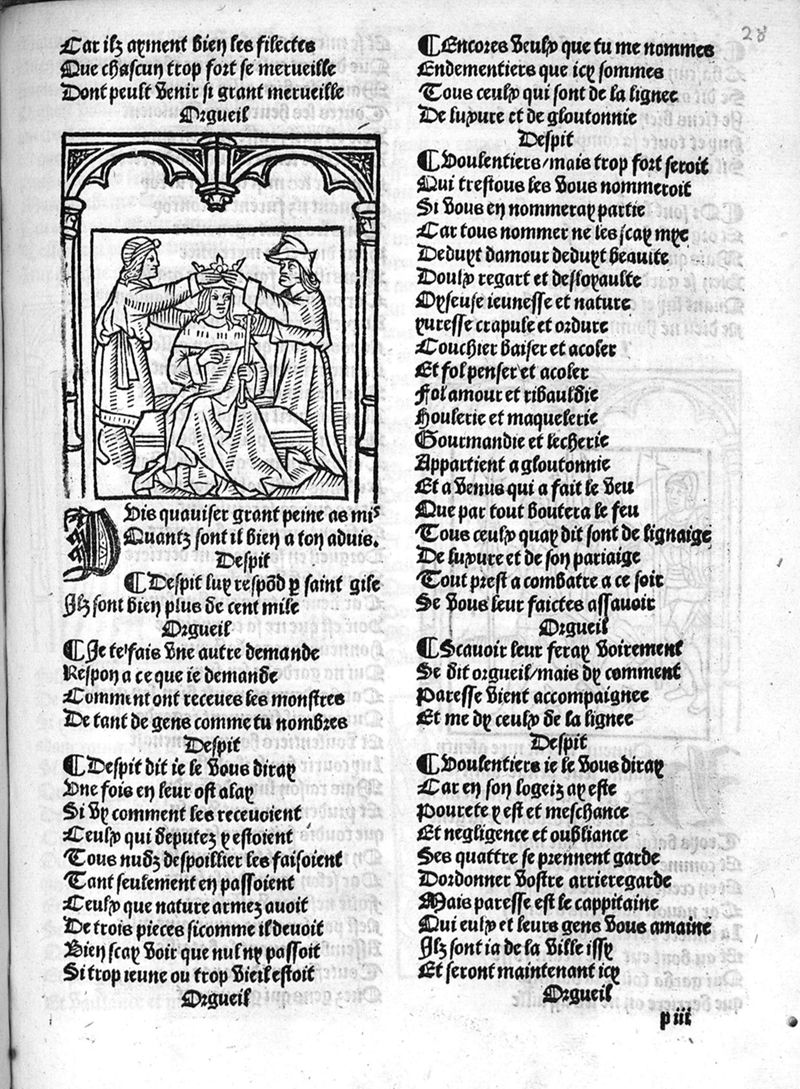 28
Car ilz ayment bien les filectes
Que chascun trop fort se merueille
Dont peult venir si grant merueille
Orgueil
Dis quauiser grant peine as mis
Quantz sont il bien a ton aduis.
Despit
¶Despit luy respõd p saint gile
Ilz sont bien plus de cent mile
Orgueil
¶Je te fais vne autre demande
Respon a ce que ie demande
Comment ont receues les monstres
De tant de gens comme tu nombres
Despit
¶Despit dit ie le vous diray
Vne fois en leur ost alay
Si vy comment les receuoient
Ceulx qui deputez y estoient
Tous nudz despoillier les faisoient
Tant seulement en passoient
Ceulx que nature armez auoit
De trois pieces sicomme il deuoit
Bien scay voir que nul ny passoit
Si trop ieune ou trop vieil estoit
Orgueil
¶Encores veulx que tu me nommes
Endementiers que icy sommes
Tous ceulx qui sont de la lignee
De luxure et de gloutonnie
Despit
¶Voulentiers/mais trop fort seroit
Qui trestous les vous nommeroit
Si vous en nommeray partie
Car tous nommer ne les scay mye
Deduyt damour deduyt beaulte
Doulx regart et desloyaulte
Oyseuse ieunesse et nature
yuresse crapule et ordure
Couchier baiser et acoler
Et fol penser et acoler
Fol amour et ribauldie
Houlerie et maquelerie
Gourmandie et lecherie
Appartient a gloutonnie
Et a Venus qui a fait le veu
Que par tout boutera le feu
Tous ceulx quay dit sont de lignaige
De luxure et de son pariaige
Tout prest a combatre a ce soir
Se vous leur faictes assauoir
Orgueil
¶Scauoir leur feray voirement
Se dit orgueil/mais dy comment
Paresse vient accompaignee
Et me dy ceulx de la lignee
Despit
¶Voulentiers ie le vous diray
Car en son logeiz ay este
Pourete y est et meschance
Et negligence et oubliance
Ses quattre se prennent garde
Dordonner vostre arrieregarde
Mais paresse est le cappitaine
Qui eulx et leurs gens vous amaine
Ilz sont ia de la ville issy
Et seront maintenant icy
Orgueil
p iii